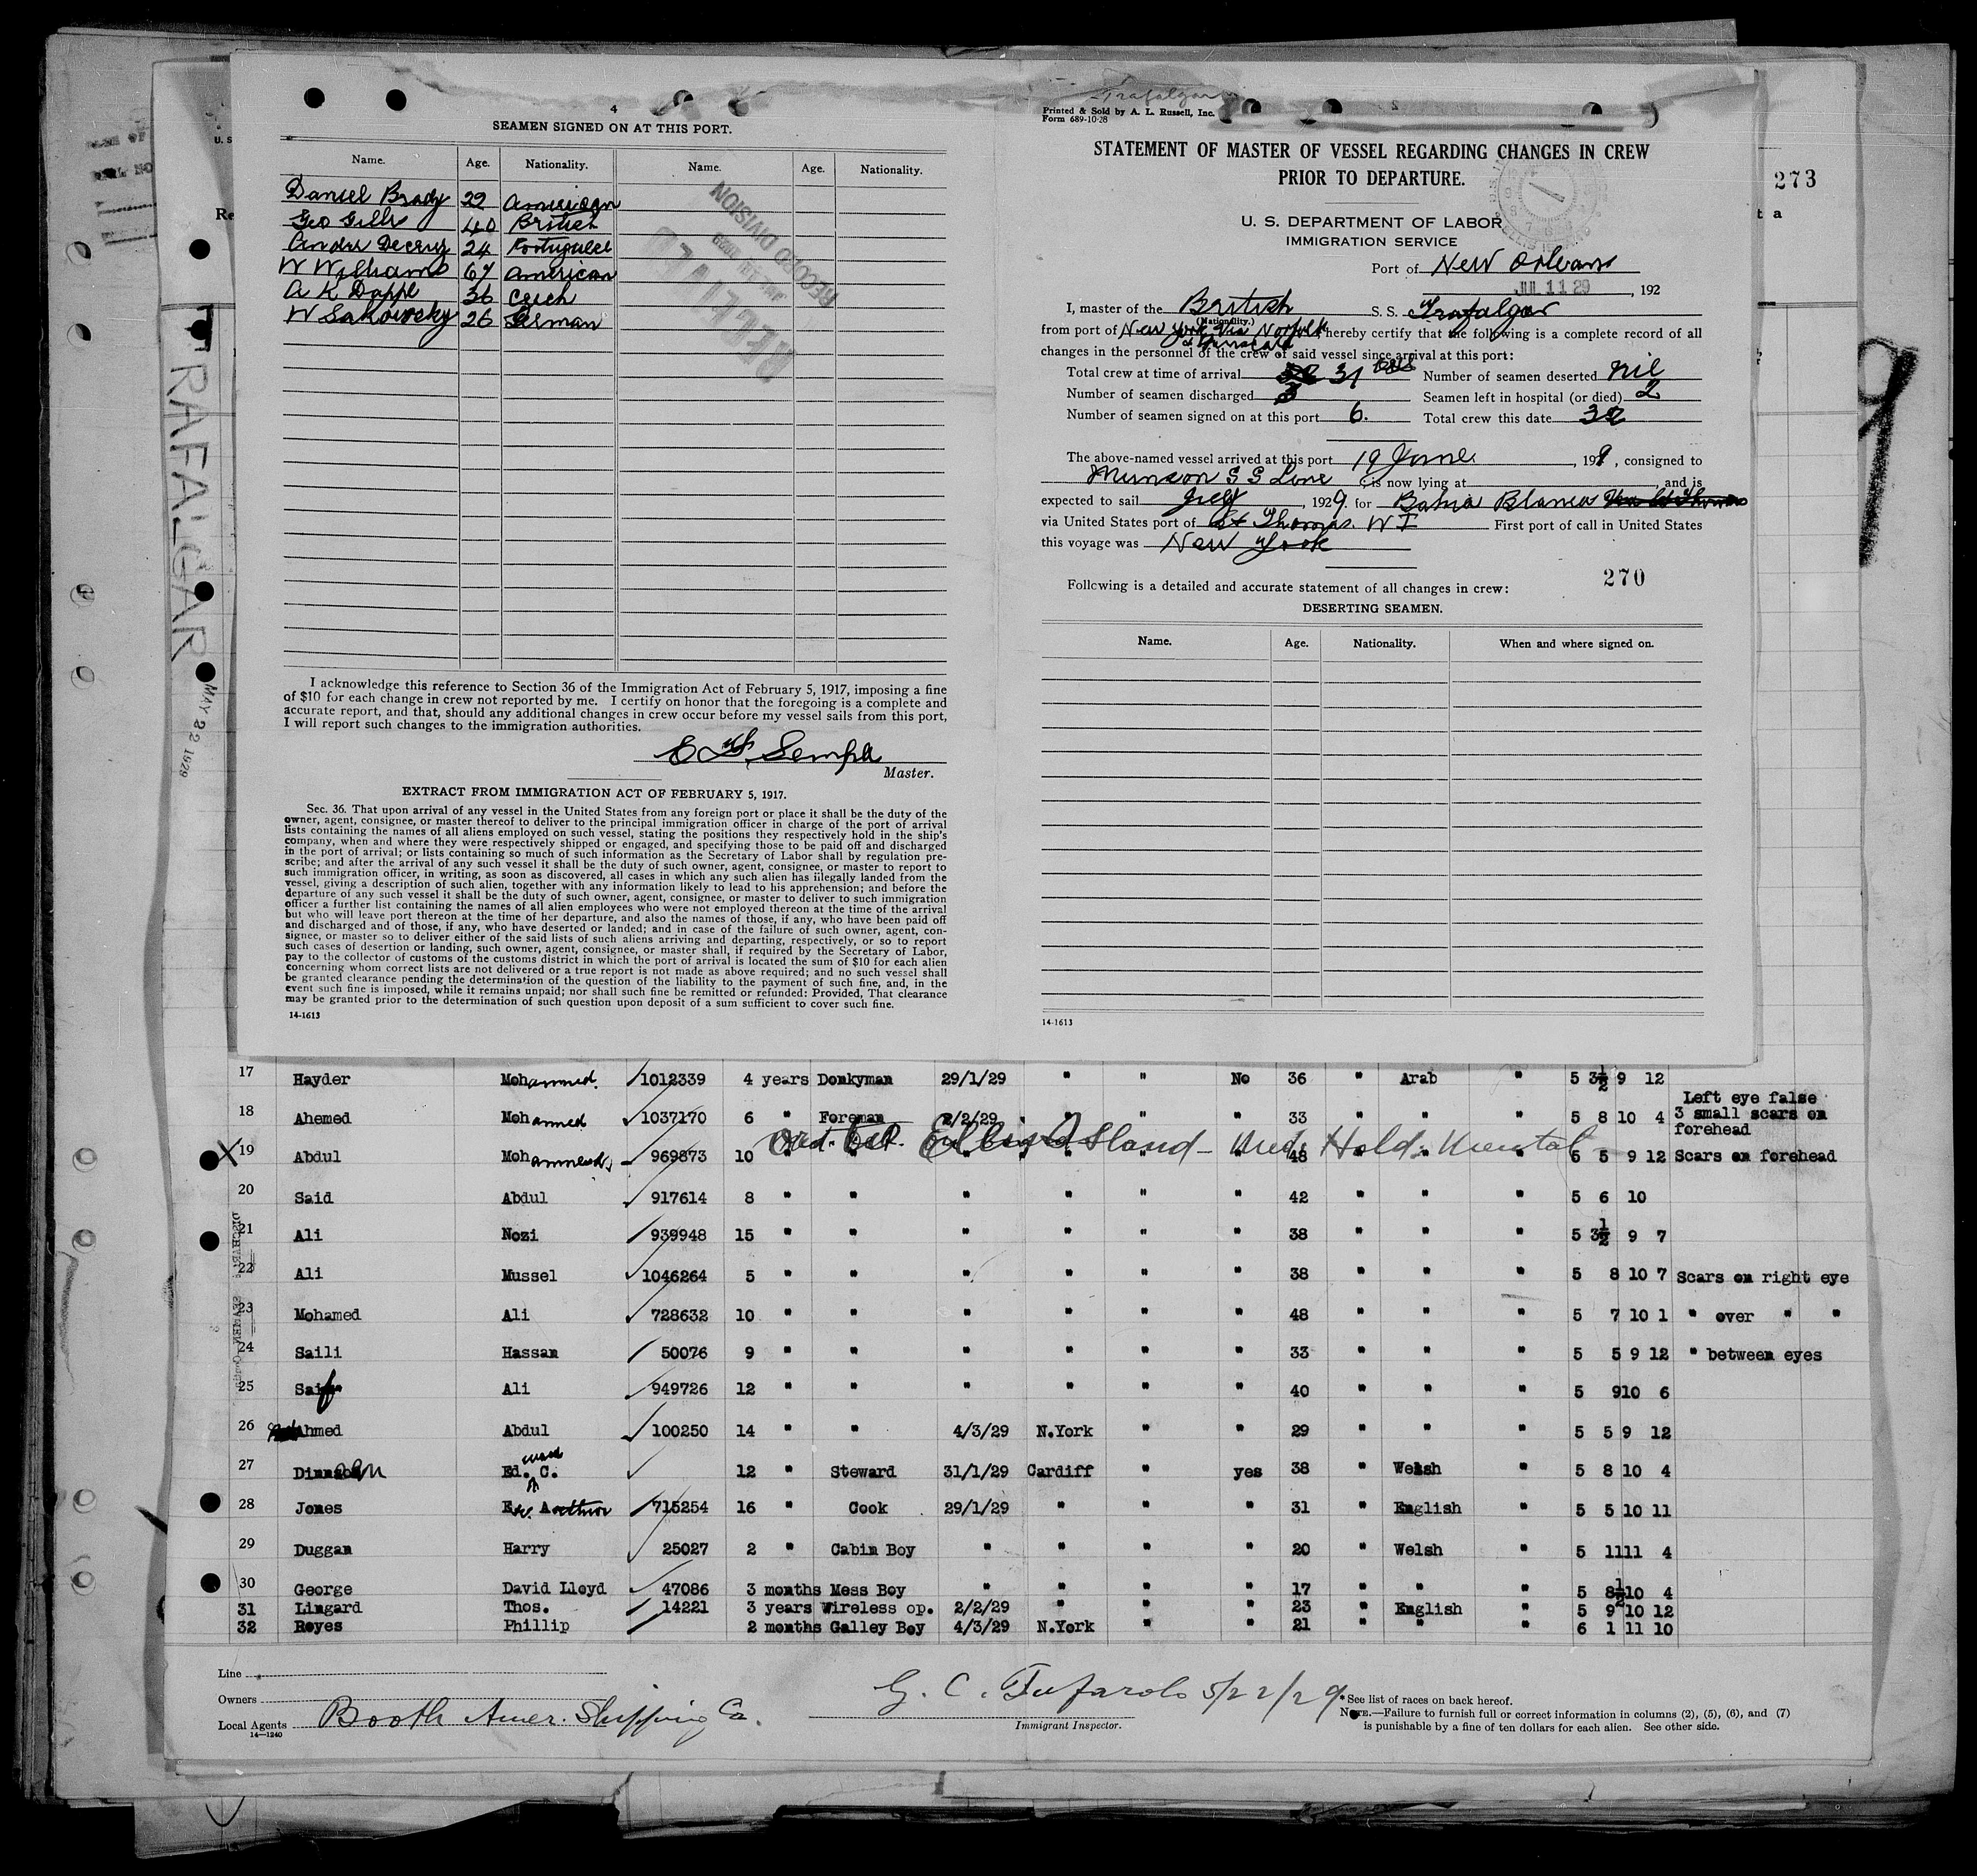 4
SEAMEN SIGNED ON AT THIS PORT.
Name. Age. Nationality. Name. Age. Nationality.
Daniel Brady 22 American
Geo Gills 40 British
Andru Decruz 24 Portuguese
W Williams 67 American
A K Dappl 36 Czech
W Sakowsky 26 German
RECEIVED
RECORD DIVISION
I acknowledge this reference to Section 36 of the Immigration Act of February 5, 1917, imposing a fine
of $10 for each change in crew not reported by me. I certify on honor that the foregoing is a complete and
accurate report, and that, should any additional changes in crew occur before my vessel sails from this port,
I will report such changes to the immigration authorities.
Master.
EXTRACT FROM IMMIGRATION ACT OF FEBRUARY 5, 1917.
Sec. 36. That upon arrival of any vessel in the United States from any foreign port or place it shall be the duty of the
owner, agent, consignee, or master thereof to deliver to the principal immigration officer in charge of the port of arrival
lists containing the names of all aliens employed on such vessel, stating the positions they respectively hold in the ship's
company, when and where they were respectively shipped or engaged, and specifying those to be paid off and discharged
in the port of arrival; or lists containing so much of such information as the Secretary of Labor shall by regulation pre-
scribe; and after the arrival of any such vessel it shall be the duty of such owner, agent, consignee, or master to report to
such immigration officer, in writing, as soon as discovered, all cases in which any such alien has illegally landed from the
vessel, giving a description of such alien, together with any information likely to lead to his apprehension; and before the
departure of any such vessel it shall be the duty of such owner, agent, consignee, or master to deliver to such immigration
officer a further list containing the names of all alien employees who were not employed thereon at the time of the arrival
but who will leave port thereon at the time of her departure, and also the names of those, if any, who have been paid off
and discharged and of those, if any, who have deserted or landed; and in case of the failure of such owner, agent, con-
signee, or master so to deliver either of the said lists of such aliens arriving and departing, respectively, or so to report
such cases of desertion or landing, such owner, agent, consignee, or master shall, if required by the Secretary of Labor,
pay to the collector of customs of the customs district in which the port of arrival is located the sum of $10 for each alien
concerning whom correct lists are not delivered or a true report is not made as above required; and no such vessel shall
be granted clearance pending the determination of the question of the liability to the payment of such fine, and, in the
event such fine is imposed, while it remains unpaid; nor shall such fine be remitted or refunded: Provided, That clearance
may be granted prior to the determination of such question upon deposit of a sum sufficient to cover such fine.
14-1613
Trafalgar
Printed & Sold by A. L. Russell, Inc.
Form 689-10-28
STATEMENT OF MASTER OF VESSEL REGARDING CHANGES IN CREW
PRIOR TO DEPARTURE.
U. S. DEPARTMENT OF LABOR
IMMIGRATION SERVICE
Port of New Orleans
JUL 11 29, 192
I, master of the British S. S. Trafalgar
(Nationality.)
from port of New York Via Norfolk, hereby certify that the following is a complete record of all
changes in the personnel of the crew of said vessel since arrival at this port:
Total crew at time of arrival 31 Number of seamen deserted nil
Number of seamen discharged 3 Seamen left in hospital (or died) 2
Number of seamen signed on at this port 6. Total crew this date 32
The above-named vessel arrived at this port 19 June, 1929, consigned to
Munson S S Line, is now lying at , and is
expected to sail July, 1929. for Bahia Blanca
via United States port of St Thomas. W I First port of call in United States
this voyage was New York
270
Following is a detailed and accurate statement of all changes in crew:
DESERTING SEAMEN.
Name. Age. Nationality. When and where signed on.
14-1613
273
TRAFALGAR
MAY 22 1929
17 Hayder Mohammed. 1012339 4 years Donkyman 29/1/29 " " No 36 " Arab " 5 3½ 9 12
Left eye false
18 Ahemed Mohammed 1037170 6 " Foreman 2/2/29 " " " 33 " " " 5 8 10 4 3 small scars on
forehead
Ellis Island - Med. Hold. Mental
19 Abdul Mohammed 969873 10 " " " " " " 48 " " " 5 5 9 12 Scars on forehead
20 Said Abdul 917614 8 " " " " " " 42 " " " 5 6 10
21 Ali Nozi 939948 15 " " " " " " 38 " " " 5 3½ 9 7
22 Ali Mussel 1046264 5 " " " " " " 38 " " " 5 8 10 7 Scars on right eye
23 Mohamed Ali 728632 10 " " " " " " 48 " " " 5 7 10 1 " over " "
24 Saili Hassan 50076 9 " " " " " " 33 " " " 5 5 9 12 " between eyes
25 Saif Ali 949726 12 " " " " " " 40 " " " 5 9 10 6
26 Ahmed Abdul 100250 14 " " 4/3/29 N.York " " 29 " " " 5 5 9 12
27 Ed.ward C. 12 " Steward 31/1/29 Cardiff " yes 38 " Welsh " 5 8 10 4
28 Jones Arthur 715254 16 " Cook 29/1/29 " " " 31 " English " 5 5 10 11
29 Duggan Harry 25027 2 " Cabin Boy " " " " 20 " Welsh " 5 11 11 4
30 George David Lloyd 47086 3 months Mess Boy " " " " 17 " " " 5 8½ 10 4
31 Lingard Thos. 14221 3 years Wireless op. 2/2/29 " " " 23 " English " 5 9 10 12
32 Reyes Phillip 2 months Galley Boy 4/3/29 N.York " " 21 " " " 6 1 11 10
Line
Owners
Local Agents Booth Amer. Shipping Co.
14—1240
5/22/29
Immigrant Inspector.
* See list of races on back hereof.
NOTE.—Failure to furnish full or correct information in columns (2), (5), (6), and (7)
is punishable by a fine of ten dollars for each alien. See other side.